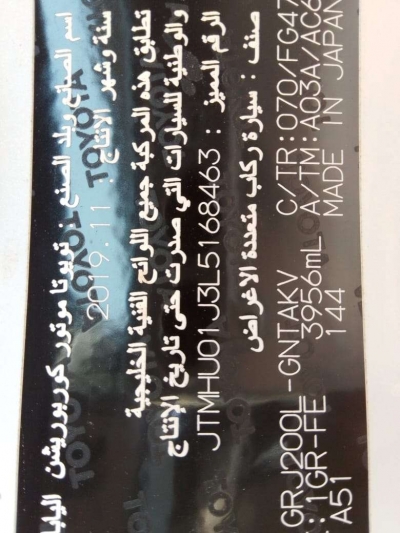 اسم الصانع وبلد الصنع : تويوتا موتور كوربوريشن اليابا
سنة وشهر الانتاج : 2019.11
تطابق هذه المركبة جميع اللوائح الفنية الخليجية
والوطنية للسيارات التي صدرت حتى تاريخ الإنتاج
الرقم المميز : JTMHU01J3L5168463
صنف : سيارة ركاب متعددة الاغراض
GRJ200L-GNTAKV C/TR:070/FG47
:1GR-FE 3956mL A/TM:A03A/AC6
A51 144 MADE IN JAPAN
TOYOTA
TOYOTA
TOYOTA